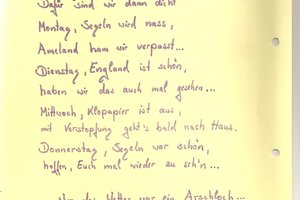 Dafür sind wir dann dicht
Montag, Segeln wird nass,
Ameland ham wir verpasst...
Dienstag, England ist schön,
haben wir das auch mal gesehen...
Mittwoch, Klopapier ist aus,
mit Verstopfung geht's bald nach Haus.
Donnerstag, Segeln war schön,
hoffen, Euch mal wieder zu seh'n...
das Wetter war ein Arschloch...